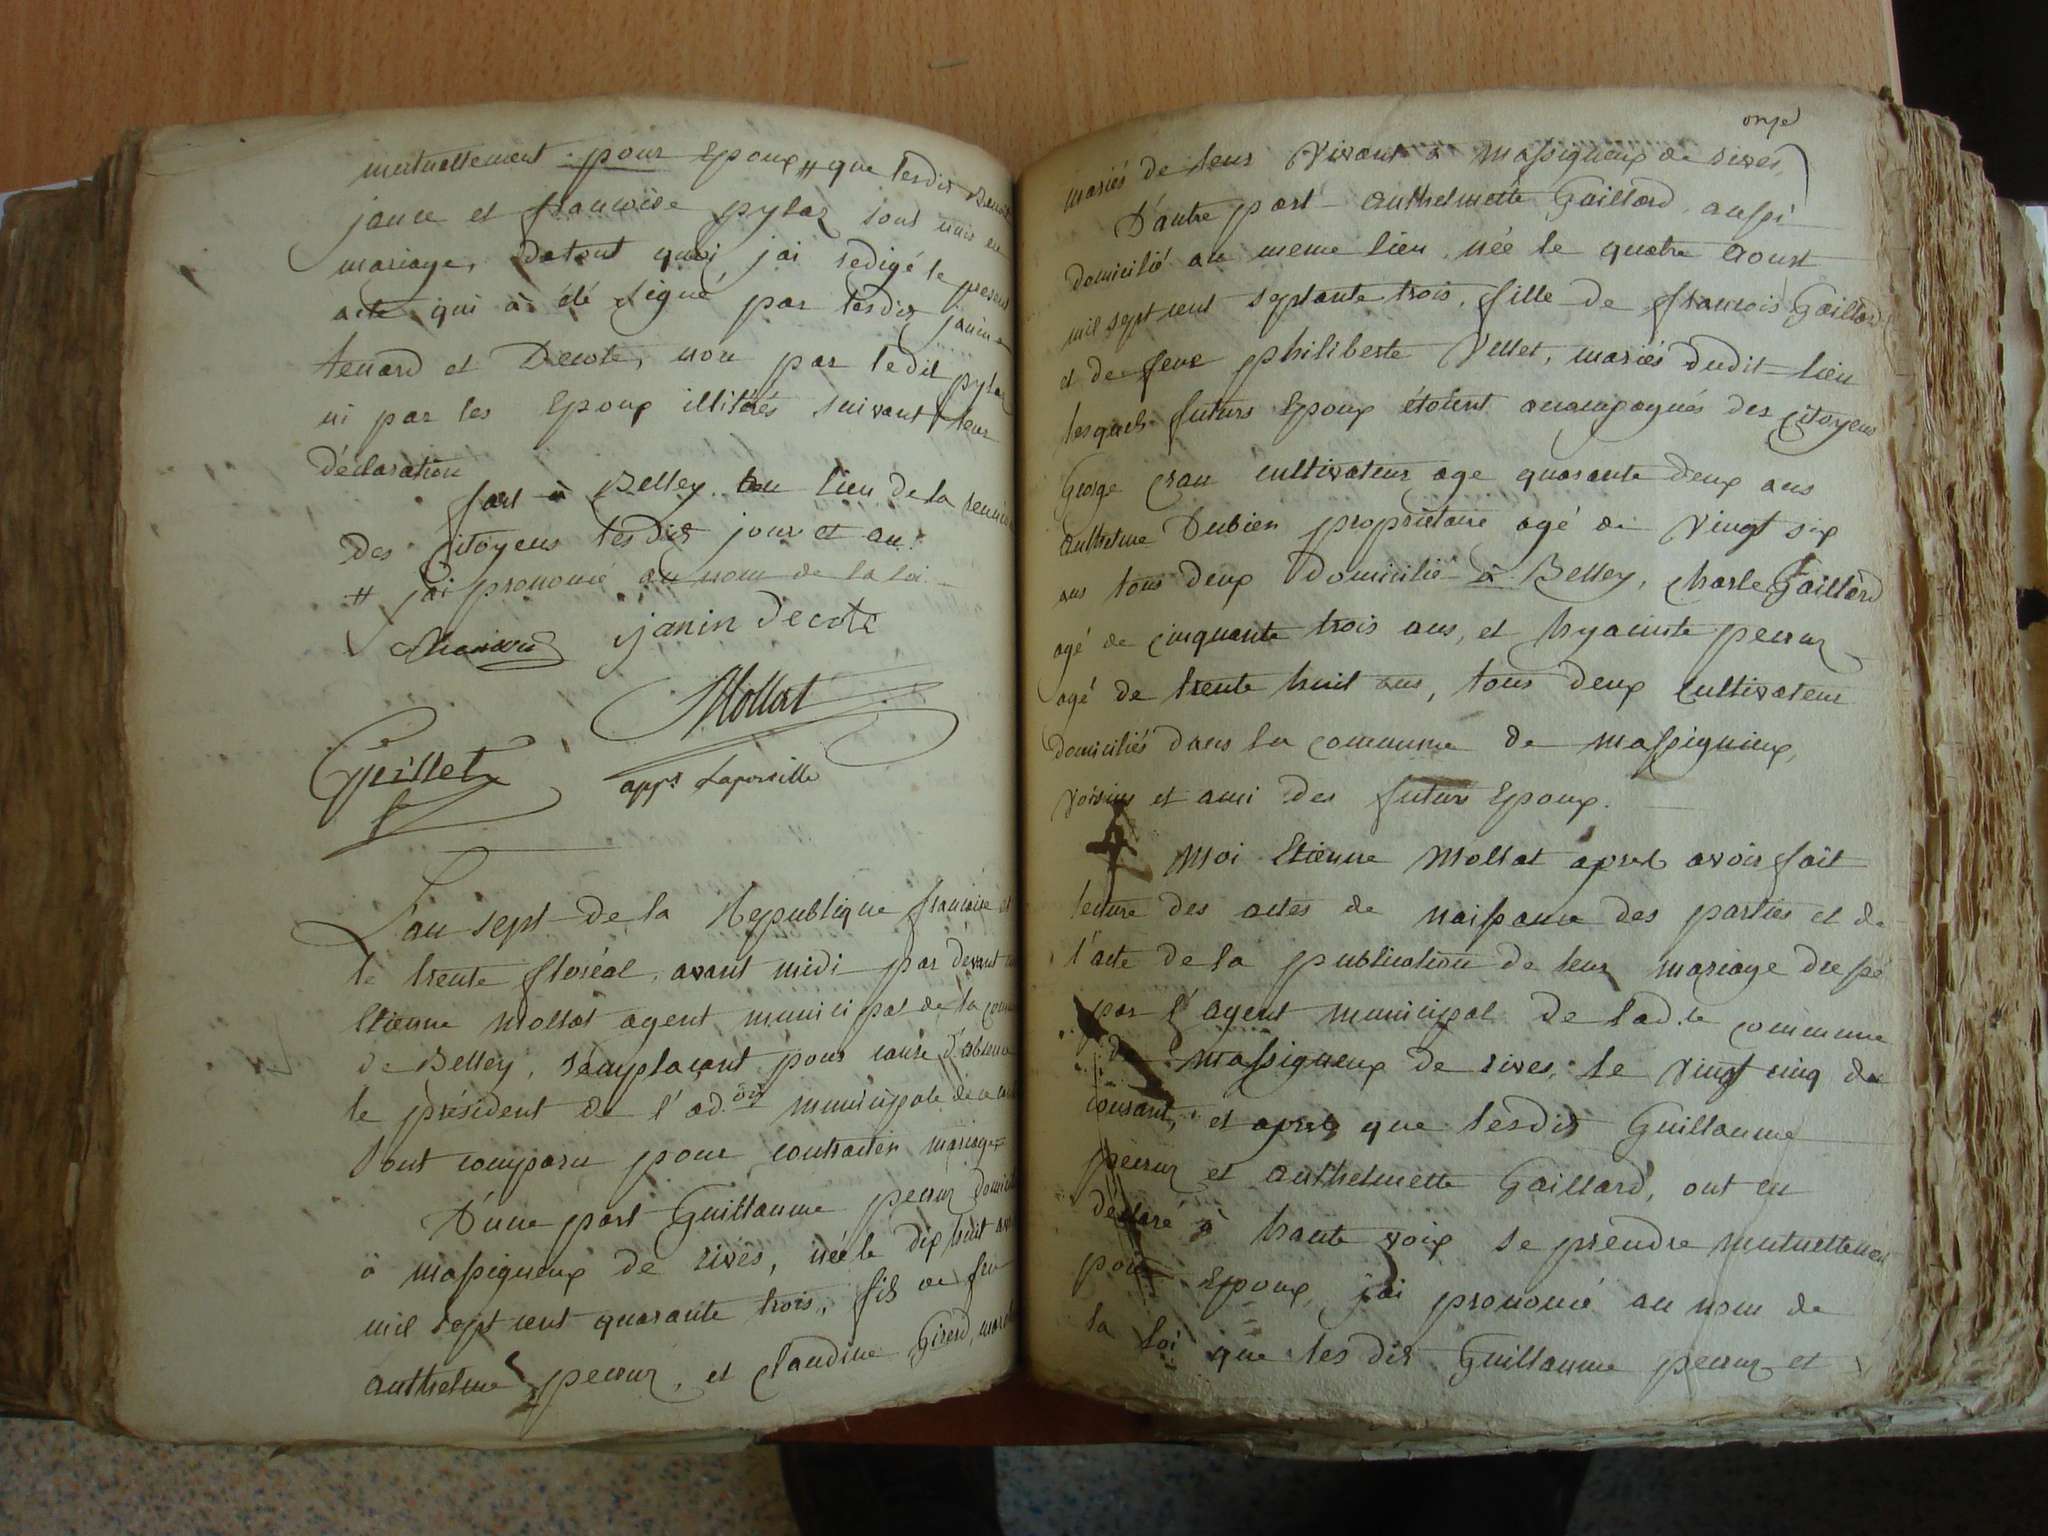 mutuellement pour Epoux # que lesdis Benoit
janin et francoise pylaz sont unis en
mariage, detout quoi, jai redigé le present
acte qui à été signé par lesdis janin
tenard et Decote, non par ledit pylaz
ni par les Epoux illitérés suivant leur
déclaration
fait à Belley au lieu de la reunion
des Citoyens lesdis jour et an.
# j'ai prononcé au nom de la loi
janin Decote
Mollat
Guillet
L'an sept de la Republique francaise et
le trente floréal, avant midi par dévant
Etienne Mollat agent municipal de la com
de Belley, rémplacant pour cause d'absence
le président de l'ad.on municipale de ce
sont comparu pour contracter mariage
D'une part Guillaume pecruz domicil
à massigneux de rives, née le dix huit
mil sept cent quarante trois, fils de feu
anthelme pecruz, et Claudine Girerd,
onze
mariés de leur vivant à Massigneux de rives,
D'autre part anthelmette Gaillard aussi
domicilié au meme lieu, née le quatre Aoust
mil sept cent septante trois, fille de francois Gaillard
et de feue philiberte Vellet, mariés dudit lieu
lesquels futurs Epoux étoient accompagnés des Citoyens
George Crau cultivateur age quarante deux ans
anthelme Dubien propriétaire agé de vingt six
ans tous deux Domicilié à Belley, Charle Gaillard
agé de cinquante trois ans, et hyacinte pecruz
agé de trente huit ans, tous deux Cultivateur
domiciliés dans la commune de massigneux,
voisins et ami des futurs Epoux.
Moi Etienne Mollat après avoir fait
lecture des actes de naissance des parties et de
l'acte de la publication de leur mariage dressé
par l'agent municipal de lad.te commune
de Massigneux de rives, le vingt cinq du
courant, et après que lesdis Guillaume
pecruz et anthelmette Gaillard, ont eu
déclaré à haute voix se prendre mutuellement
pour Epoux, jai prononcé au nom de
la loi que les dis Guillaume pecruz et